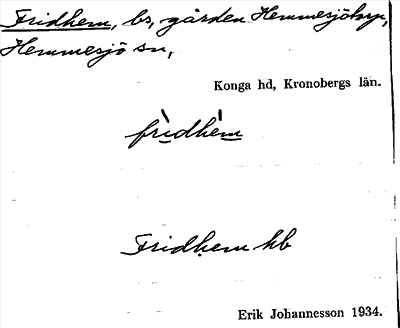 Fridhem, bs, gården Hemmesjötorp,
Hemmesjö sn,
Konga hd, Kronobergs län.
frìdhém
Fridhem hb
Erik Johannesson 1934.